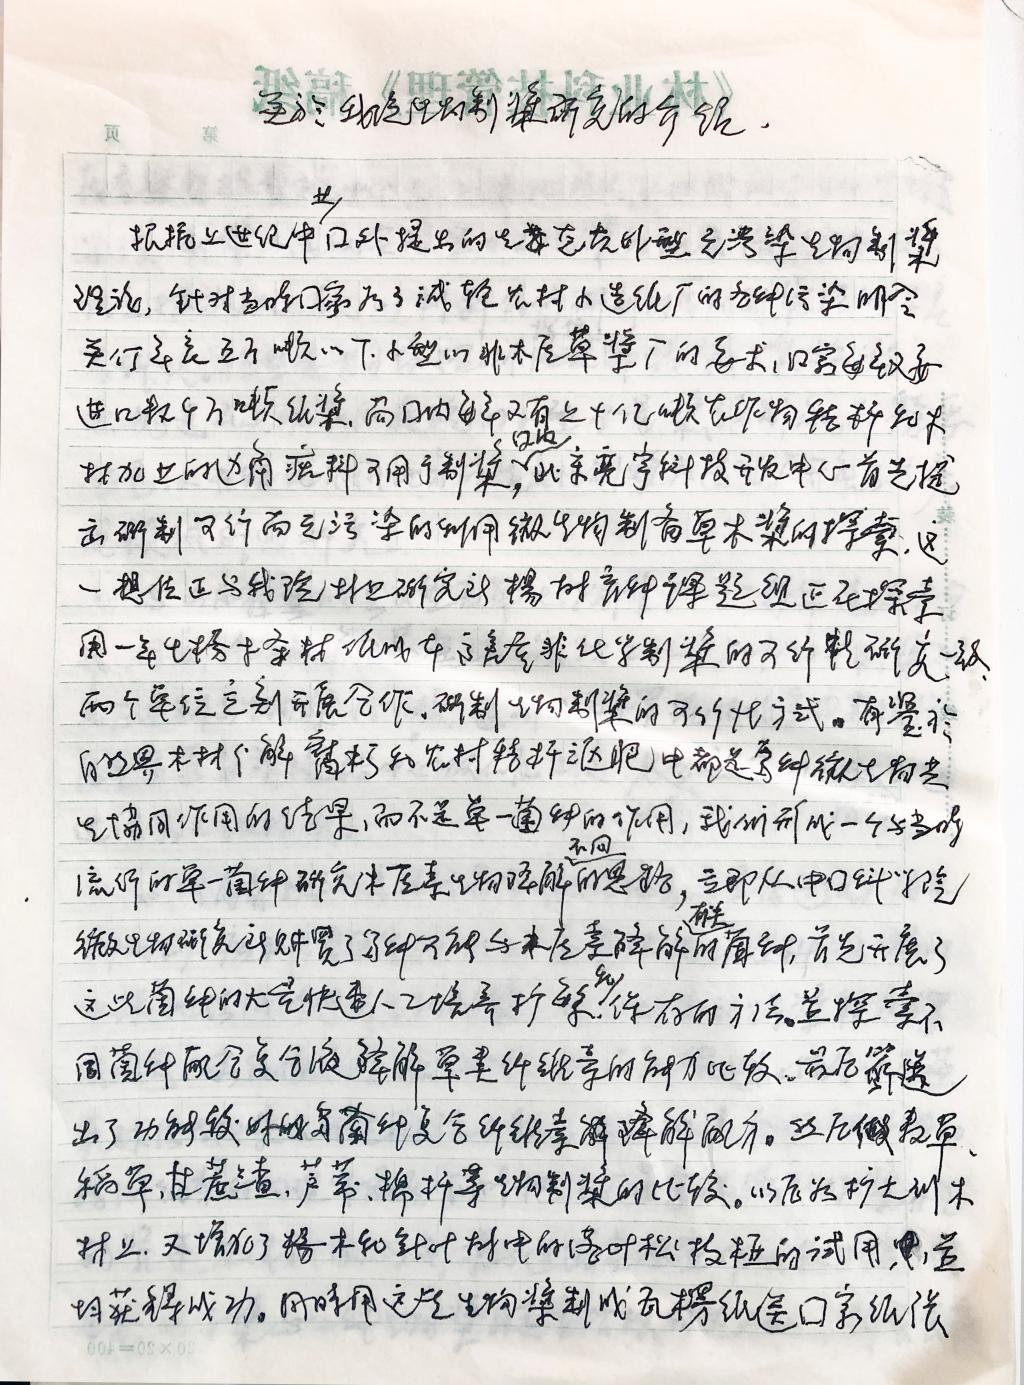 《林业科技管理》稿纸
第 页
关於我院生物制浆研究的介绍.
根据上世纪中囗外提出的生 无污染生物制浆
理论, 针对当时囗家为了减轻农村小造纸厂的各种污染明令
关停年产五万吨以下小型以非木质草浆厂的要求, 囗家每年又要
进囗数千万吨纸浆. 而囗内每年又有上十亿吨农作物秸秆和木
材加工的边角废料可用于制浆, 北京亮宇科技开发中心首先提
出研制可行而无污染的利用微生物制备草木浆的探索. 这
一想法正与我院林业研究所杨树育种课题组正在探索
用一年生杨木条材 非化学制浆的可行性研究一致.
两个单位立刻开展合作. 研制生物制浆的可行化方式。有鉴於
自然界木材分解腐朽和农村秸秆沤肥中都是多种微生物共
生协同作用的结果, 而不是单一菌种的作用, 我们形成一个与当时
流行的单一菌种研究木质素生物降解不同的思路, 立即从中囗科学院
微生物研究所购买了多种可能与木质素降解有关的菌种, 首先开展了
这些菌种的大量快速人工培养扩繁和保存的方法。并探索不
同菌种配合复合液降解草类纤维素的能力比较. 最后筛选
出了功能较好的多菌种复合纤维素降解配方。然后做麦草、
稻草, 甘蔗渣, 芦苇、棉杆等生物制浆的比较。以后为扩大到木
材上. 又增加了杨木和针叶材中的落叶松枝桠的试用, 并
均获得成功。同时用这些生物浆制成瓦楞纸送囗家纸张
20×20=400